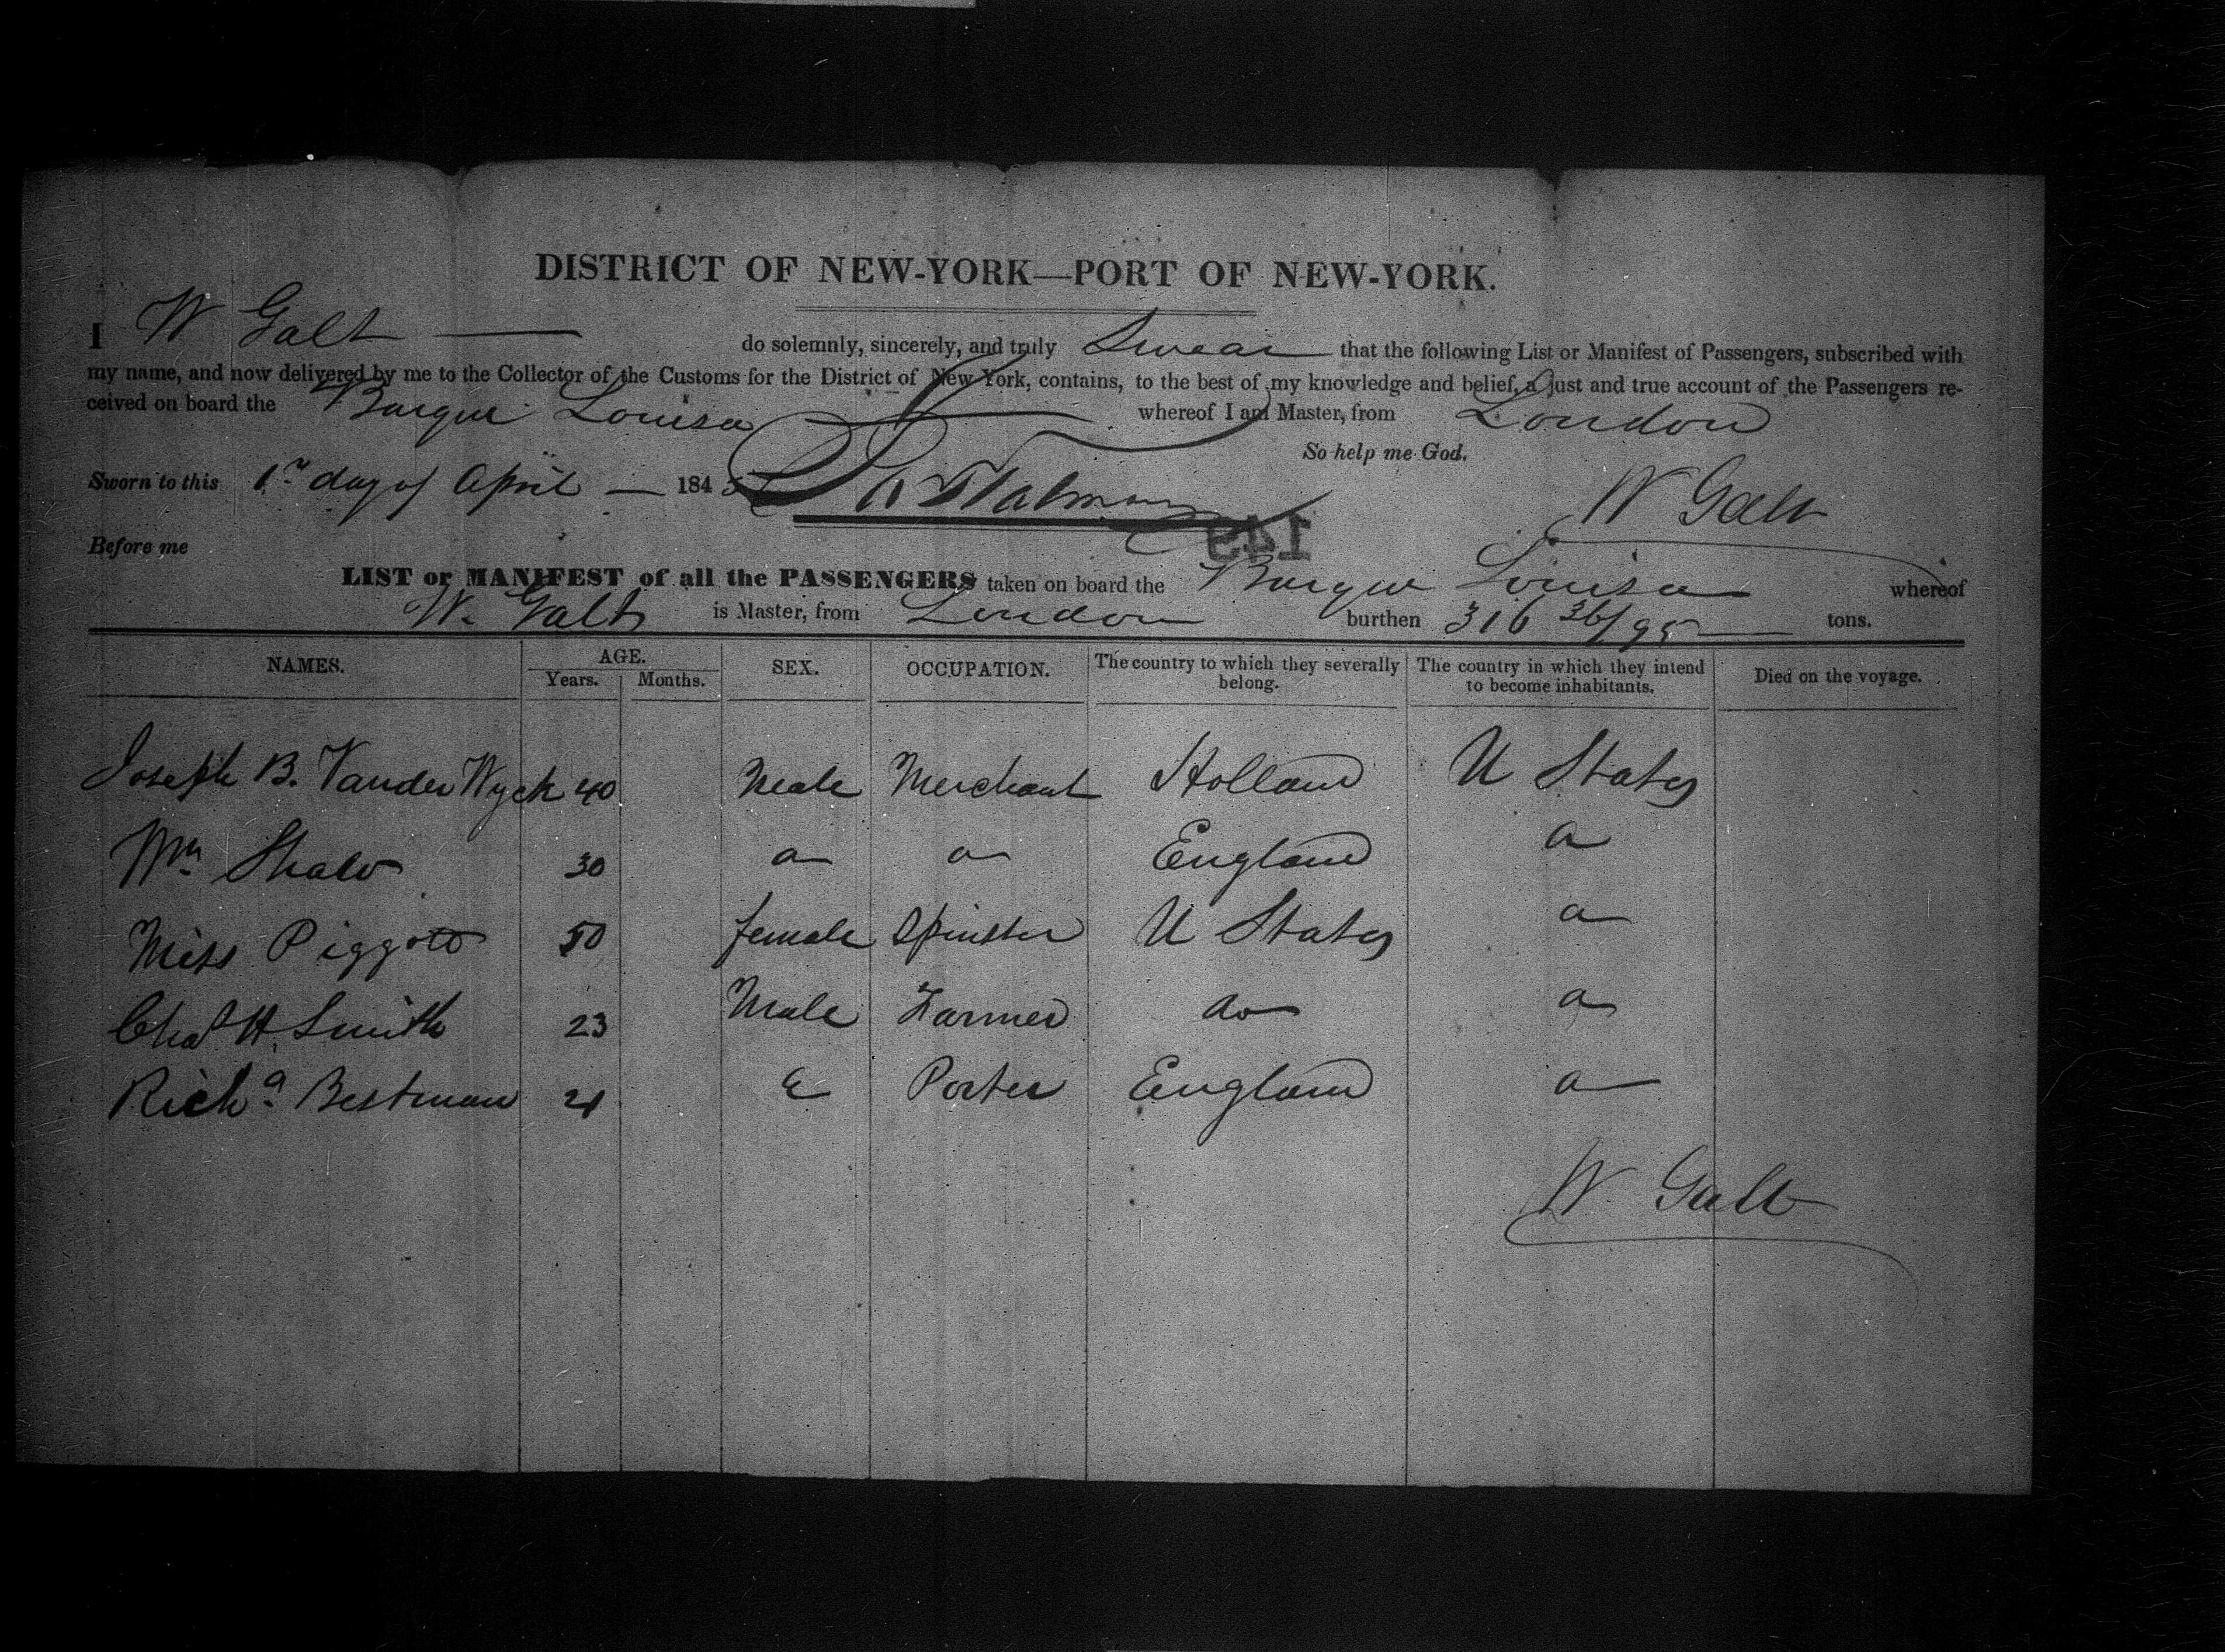 DISTRICT OF NEW-YORK—PORT OF NEW-YORK.
I W Galt do solemnly, sincerely, and truly Swear that the following List or Manifest of Passengers, subscribed with
my name, and now delivered by me to the Collector of the Customs for the District of New York, contains, to the best of my knowledge and belief, a just and true account of the Passengers re-
ceived on board the Barque Louisa whereof I am Master, from London
So help me God.
Sworn to this 1st day of April — 184 W Galt
Before me
149
LIST or MANIFEST of all the PASSENGERS taken on board the Barque Louisa whereof
W. Galt is Master, from London burthen 316 36/95 tons.
NAMES. AGE. SEX. OCCUPATION. The country to which they severally belong. The country in which they intend to become inhabitants. Died on the voyage.
Years. Months.
Joseph B. Vander Wyck 40 Male Merchant Holland U States
Shaw 30 England
Miss Piggott 50 female Spinster U States
Chas H. Smith 23 Male Farmer do
Richd Bestman 21 Porter England
W Galt